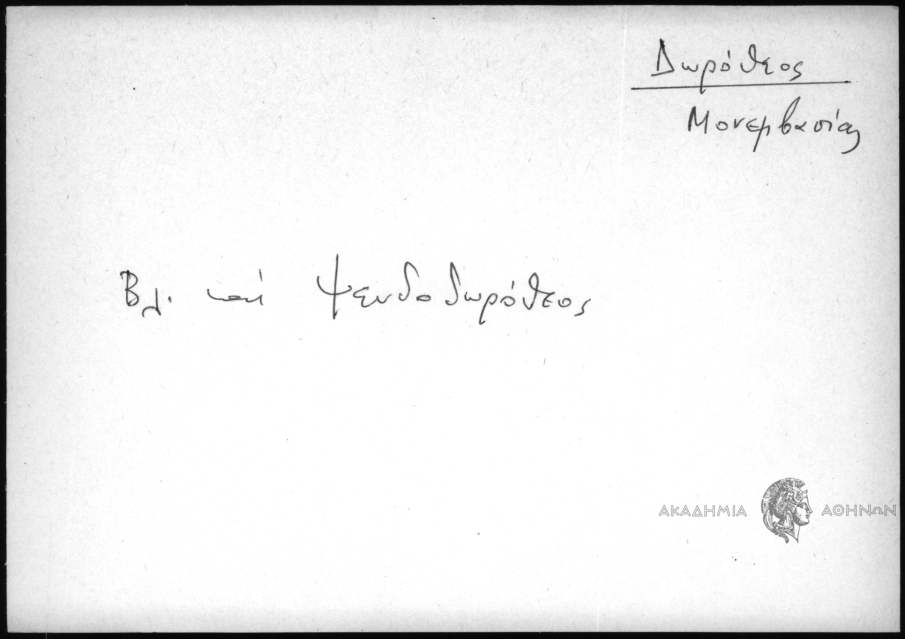 Δωρόθεος
Μονεμβασίας
Βλ. καί Ψευδοδωρόθεος
ΑΚΑΔΗΜΙΑ ΑΘΗΝΩΝ